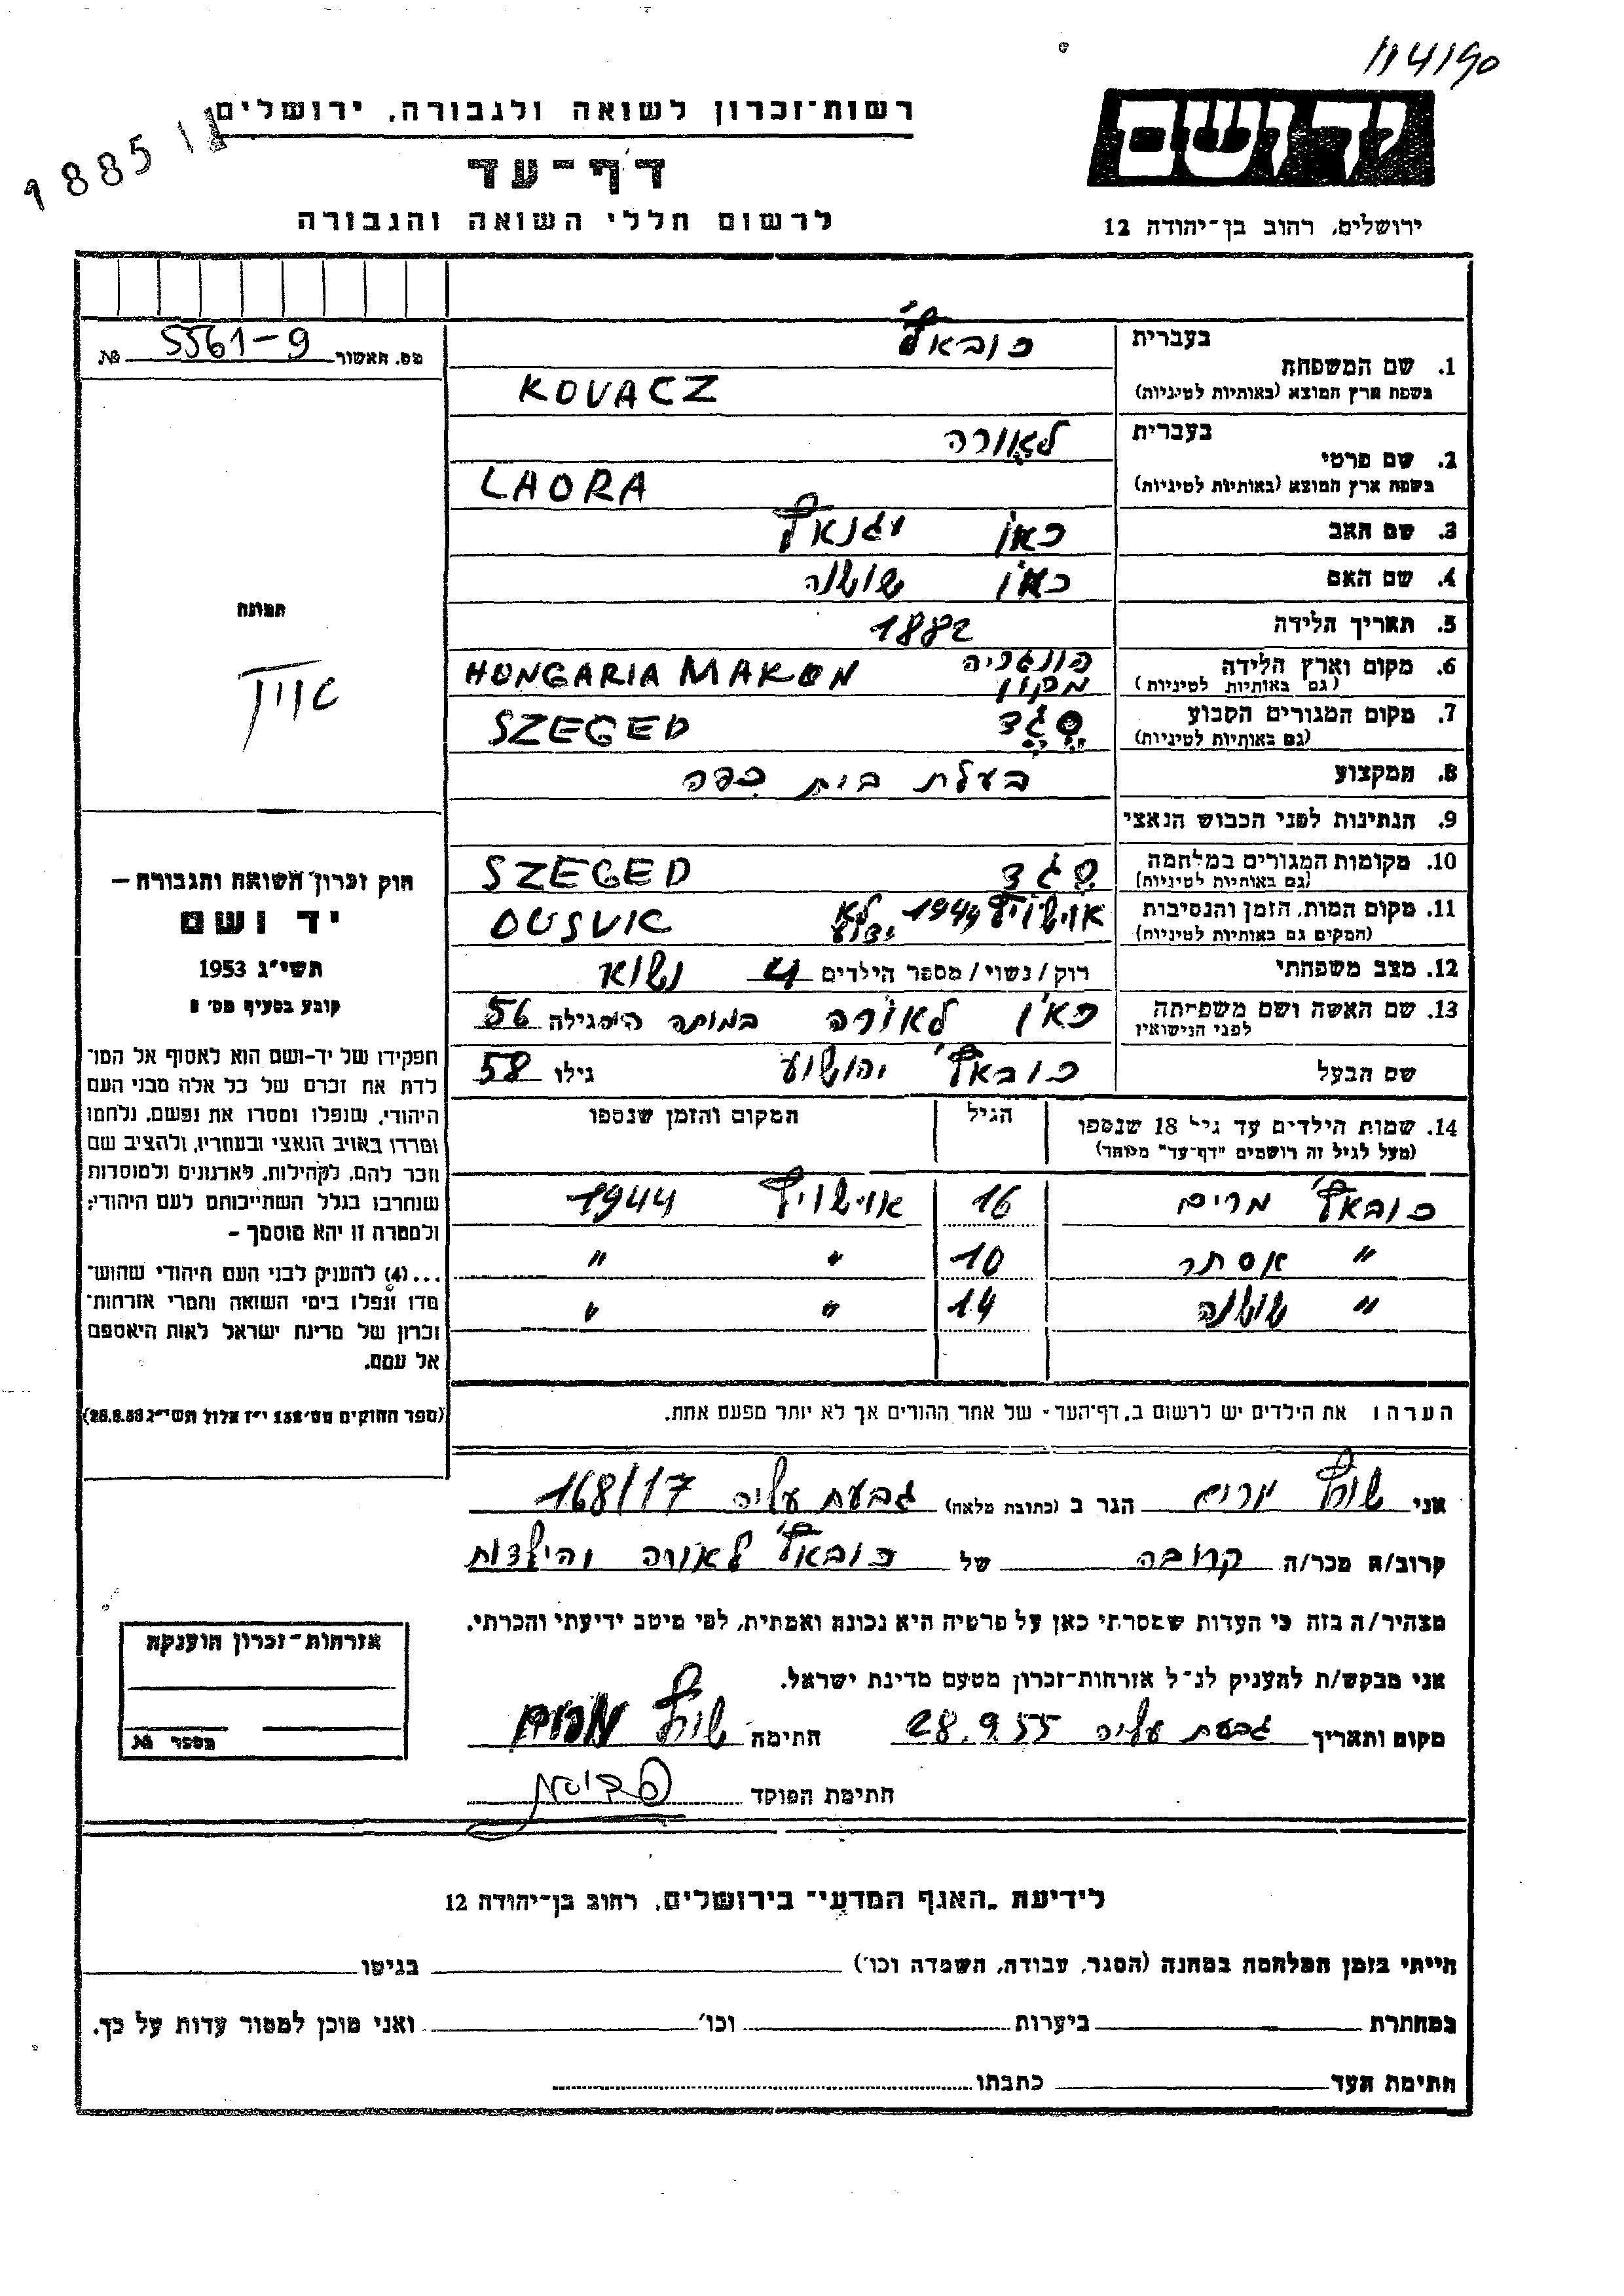 114190
יד ושם
רשות־זכרון לשואה ולגבורה, ירושלים
188511
דף־עד
לרשום חללי השואה והגבורה
ירושלים, רחוב בן־יהודה 12
מס. האשור № 5561-9
תמונה
חוק זכרון השואה והגבורה —
יד ושם
תשי״ג 1953
קובע בסעיף מס׳ 2
תפקידו של יד-ושם הוא לאסוף אל המו־
לדת את זכרם של כל אלה מבני העם
היהודי, שנפלו ומסרו את נפשם, נלחמו
ומרדו באויב הנאצי ובעוזריו, ולהציב שם
וזכר להם, לקהילות, לארגונים ולמוסדות
שנחרבו בגלל השתייכותם לעם היהודי;
ולמטרה זו יהא מוסמך -
...(4) להעניק לבני העם היהודי שהוש־
מדו ונפלו בימי השואה והמרי אזרחות־
זכרון של מדינת ישראל לאות היאספם
אל עמם.
(ספר החוקים מס׳ 132 י״ז אלול תשי״ג 28.8.53)
בעברית קובאץ׳
1. שם המשפחה
בשפת ארץ המוצא (באותיות לטיניות) KOVACZ
בעברית לאורה
2. שם פרטי
בשפת ארץ המוצא (באותיות לטיניות) LAORA
3. שם האב כאן יגנאץ
4. שם האם כאן שושנה
5. תאריך הלידה 1882
6. מקום וארץ הלידה הונגריה מקון HONGARIA MAKON
(גם באותיות לטיניות)
7. מקום המגורים הקבוע סגד SZEGED
(גם באותיות לטיניות)
8. המקצוע בעלת בית קפה
9. הנתינות לפני הכבוש הנאצי
10. מקומות המגורים במלחמה סגד SZEGED
(גם באותיות לטיניות)
11. מקום המות, הזמן והנסיבות אוישויץ 1944 לא ידוע OUSVIC
(המקום גם באותיות לטיניות)
12. מצב משפחתי רוק/נשוי/מספר הילדים 4 נשוא
13. שם האשה ושם משפחתה כאן לאורה במותה היא גילה 56
לפני הנישואין
שם הבעל קובאץ׳ יהושוע גילו 58
14. שמות הילדים עד גיל 18 שנספו הגיל המקום והזמן שנספו
(מעל לגיל זה רושמים "דף־עד" מיוחד)
קובאץ׳ מרים 16 אוישויץ 1944
" אסתר 10 " "
" שושנה 14 " "
הערה: את הילדים יש לרשום ב„דף־העד״ של אחד ההורים אך לא יותר מפעם אחת.
אני שורץ מרים הגר ב (כתובת מלאה) גבעת עליה 168/17
קרוב/ה מכר/ה קרובה של קובאץ׳ לאורה והילדות
מצהיר/ה בזה כי העדות שמסרתי כאן על פרטיה היא נכונה ואמתית, לפי מיטב ידיעתי והכרתי.
אני מבקש/ת להעניק לנ״ל אזרחות־זכרון מטעם מדינת ישראל.
מקום ותאריך גבעת עליה 28.9.55 חתימה שורץ מרים
חתימת הפוקד
אזרחות־זכרון הוענקה
מספר №
לידיעת „האגף המדעי״ בירושלים, רחוב בן־יהודה 12
הייתי בזמן המלחמה במחנה (הסגר, עבודה, השמדה וכו׳) בגיטו
במחתרת ביערות וכו׳ ואני מוכן למסור עדות על כך.
חתימת העד כתבתו